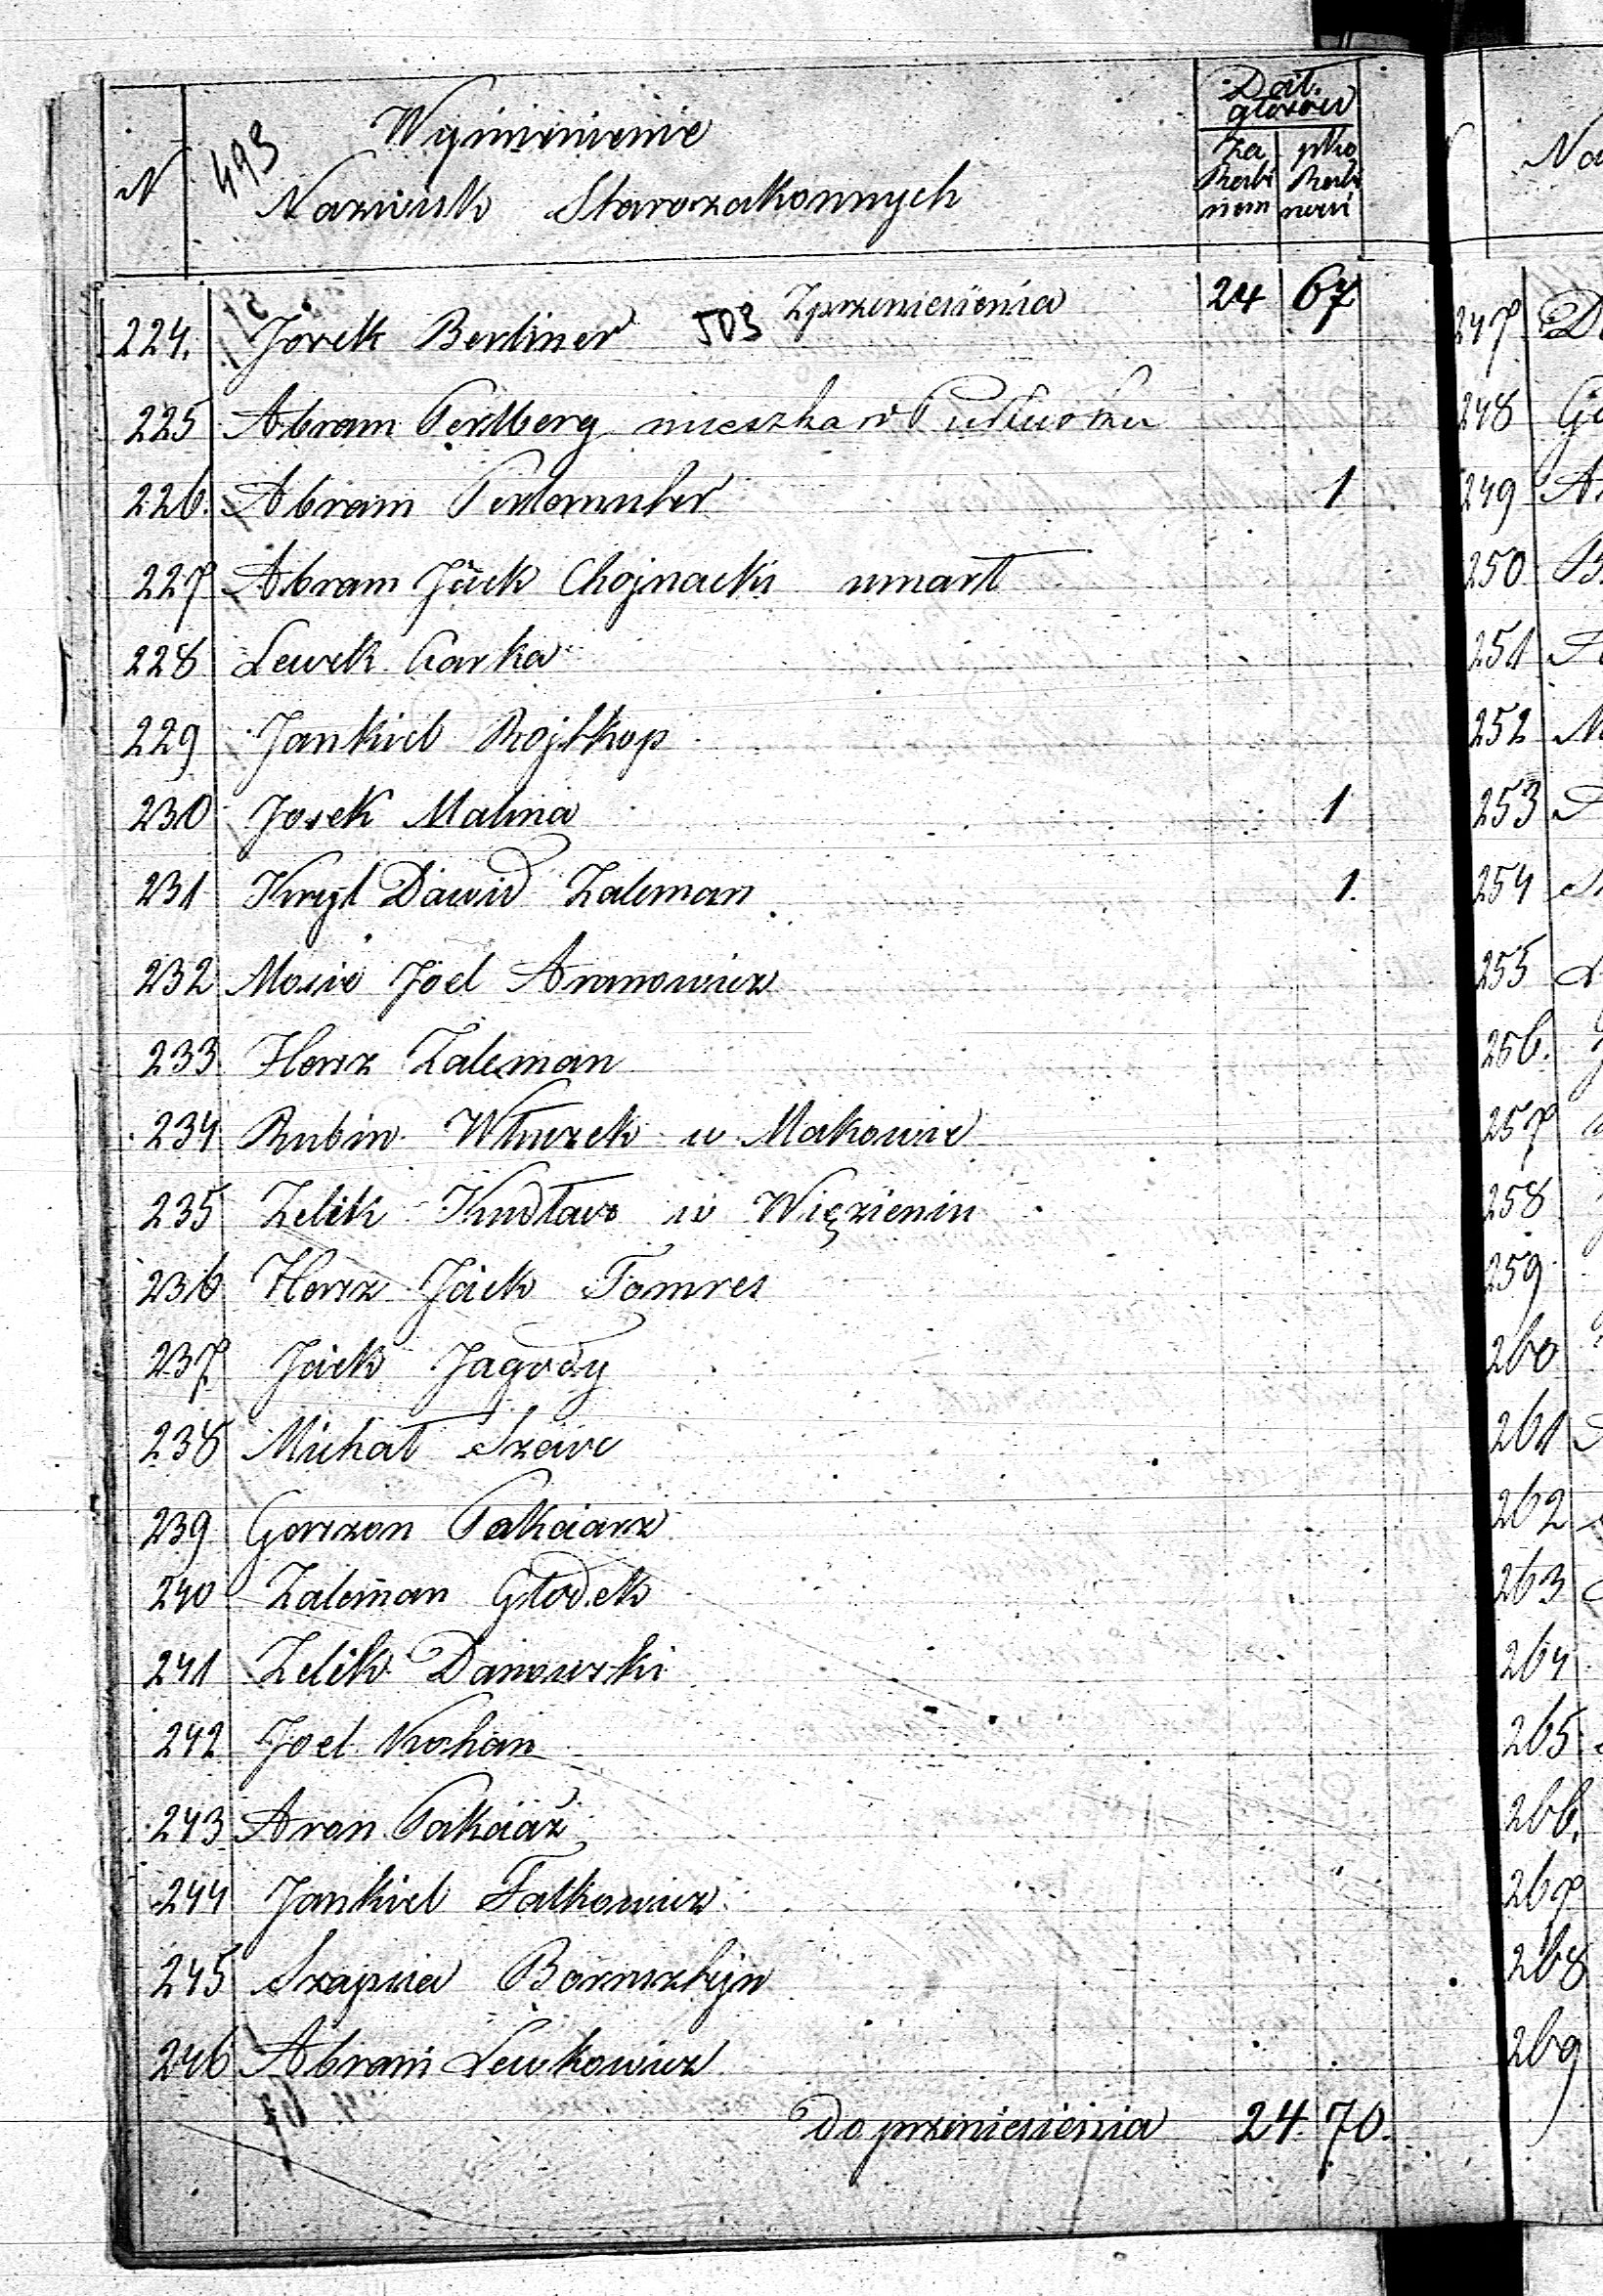 N 493 Wymienienie
Nazwisk Starozakonnych
Dał. głosów
za Rabi nem
ptko Rabi nowi
Zprzeniesienia 24 67
224. Josek Berliner 503
225 Abram Perlberg mieszka w Pułtusku
226. Abram Perlomuter 1
227 Abram Jcek Chojnacki umarł
228 Lewek Carka
229 Jankiel Rojtkop
230 Josek Malina 1
231 Krygl Dawid Zaleman 1.
232 Mosie Joel Aronowicz
233 Hersz Zaleman
234 Rubin Wturek w Makowie
235 Zelik Kudłarz w Więzieniu
236 Hersz Jcek Tomres
237. Jcek Jagody
238 Michał Szewc
239 Gerszon Pakciarz
240 Zaleman Głodek
241 Zelik Danowski
242 Joel Kohan
243 Aron Pakciarz
244 Jankiel Falkowicz
245 Szapsia Bornsztejn
246 Abram Lewkowicz
Do przeniesienia 24. 70.
247
248
249
250
251
252
253
254
255
256.
257
258
259
260
261
262
263
264
265
266.
267
268
269